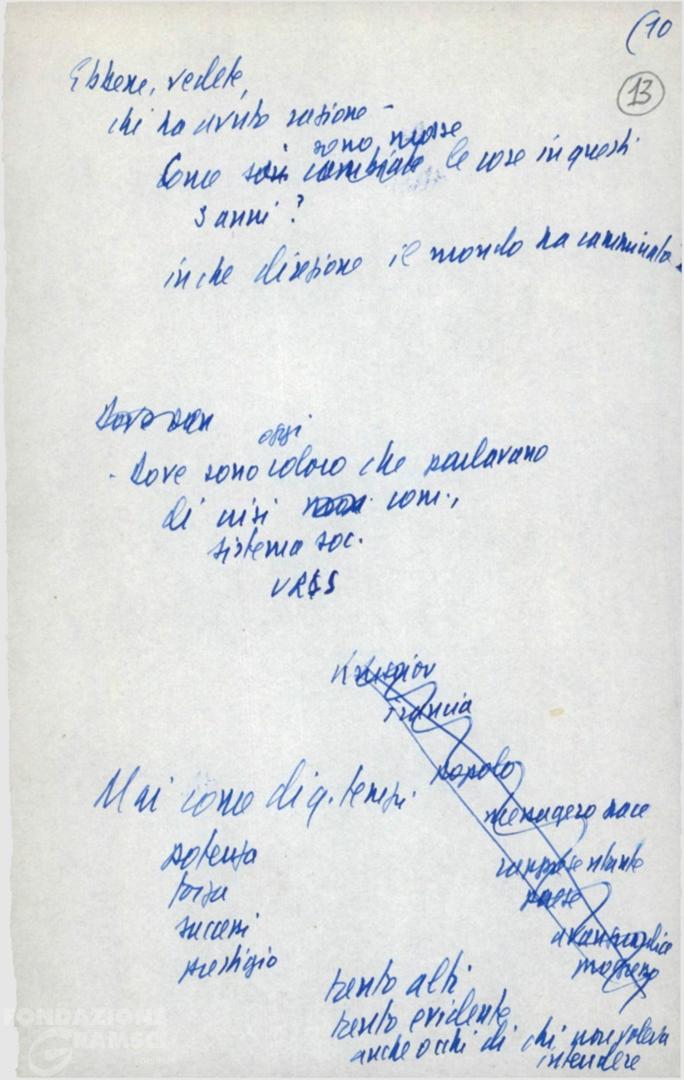 (10
13
Ebbene, vedete,
chi ha avuto ragione –
sono mosse
Come cambiate le cose in questi
3 anni?
in che direzione il mondo ha camminato.
Dove
oggi
- Dove sono coloro che parlavano
di crisi com.,
sistema soc.
URSS
Krusciov
Francia
popolo
Mai come di q. tempi
messagero pace
potenza
rappresentante
forza
paese
successi
prestigio
tanto alti
tanto evidente
anche occhi di chi non voleva
intendere
FONDAZIONE
GRAMSCI